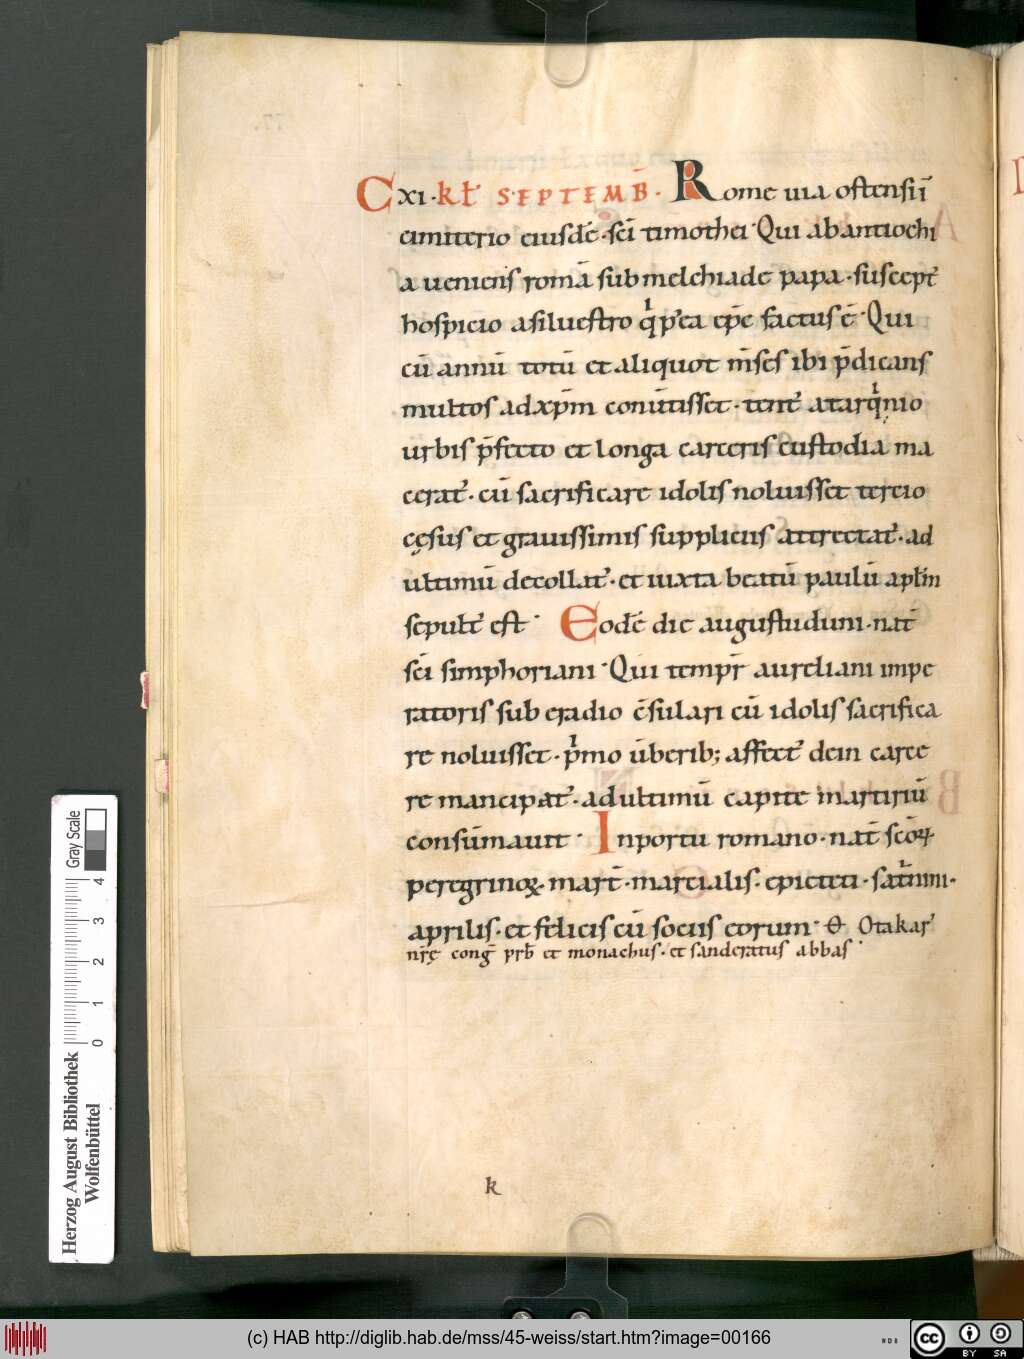 C xi · kł SEPTEMB̄ · Rome uia ostensii
cimiterio eiusdē · sc̄i timothei · Qui ab antiochi
a ueniens romā sub melchiade papa · suscept᷒
hospicio a siluestro qͥ p̄ea ep̄c factus ē · Qui
cū annū totū et aliquot m̄ses ibi p̄dicans
multos ad xp̄m conūtisset · tent᷒ a tarqͥnio
urbis p̄fecto et longa carceris custodia ma
cerat᷒ · cū sacrificare idolis noluisset tercio
cęsus et grauissimis suppliciis attrectat᷒ · ad
ultimū decollat᷒ · et iuxta beatū paulū apłm
sepult᷒ est · Eodē die augustuduni · nat̄
sc̄i simphoriani · Qui tempr̄ aureliani impe
ratoris sub eradio c̄sulari cū idolis sacrifica
re noluisset · pͥmo ūberib; affect᷒ dein carce
re mancipat᷒ · ad ultimū capite martiriū
consūmauit · In portu romano · nat̄ sc̄oꝝ
peregrinoꝝ · mart̄ · marcialis · epicteti · satͬnini ·
aprilis · et felicis cū sociis eorum · Θ Otakar᷒
nr̄ę cong̅ prb̄ et monachus · et sanderatus abbas ·
k
Herzog August Bibliothek
Wolfenbüttel
0 1 2 3 4
Gray Scale
(c) HAB http://diglib.hab.de/mss/45-weiss/start.htm?image=00166
WDB
cc BY SA